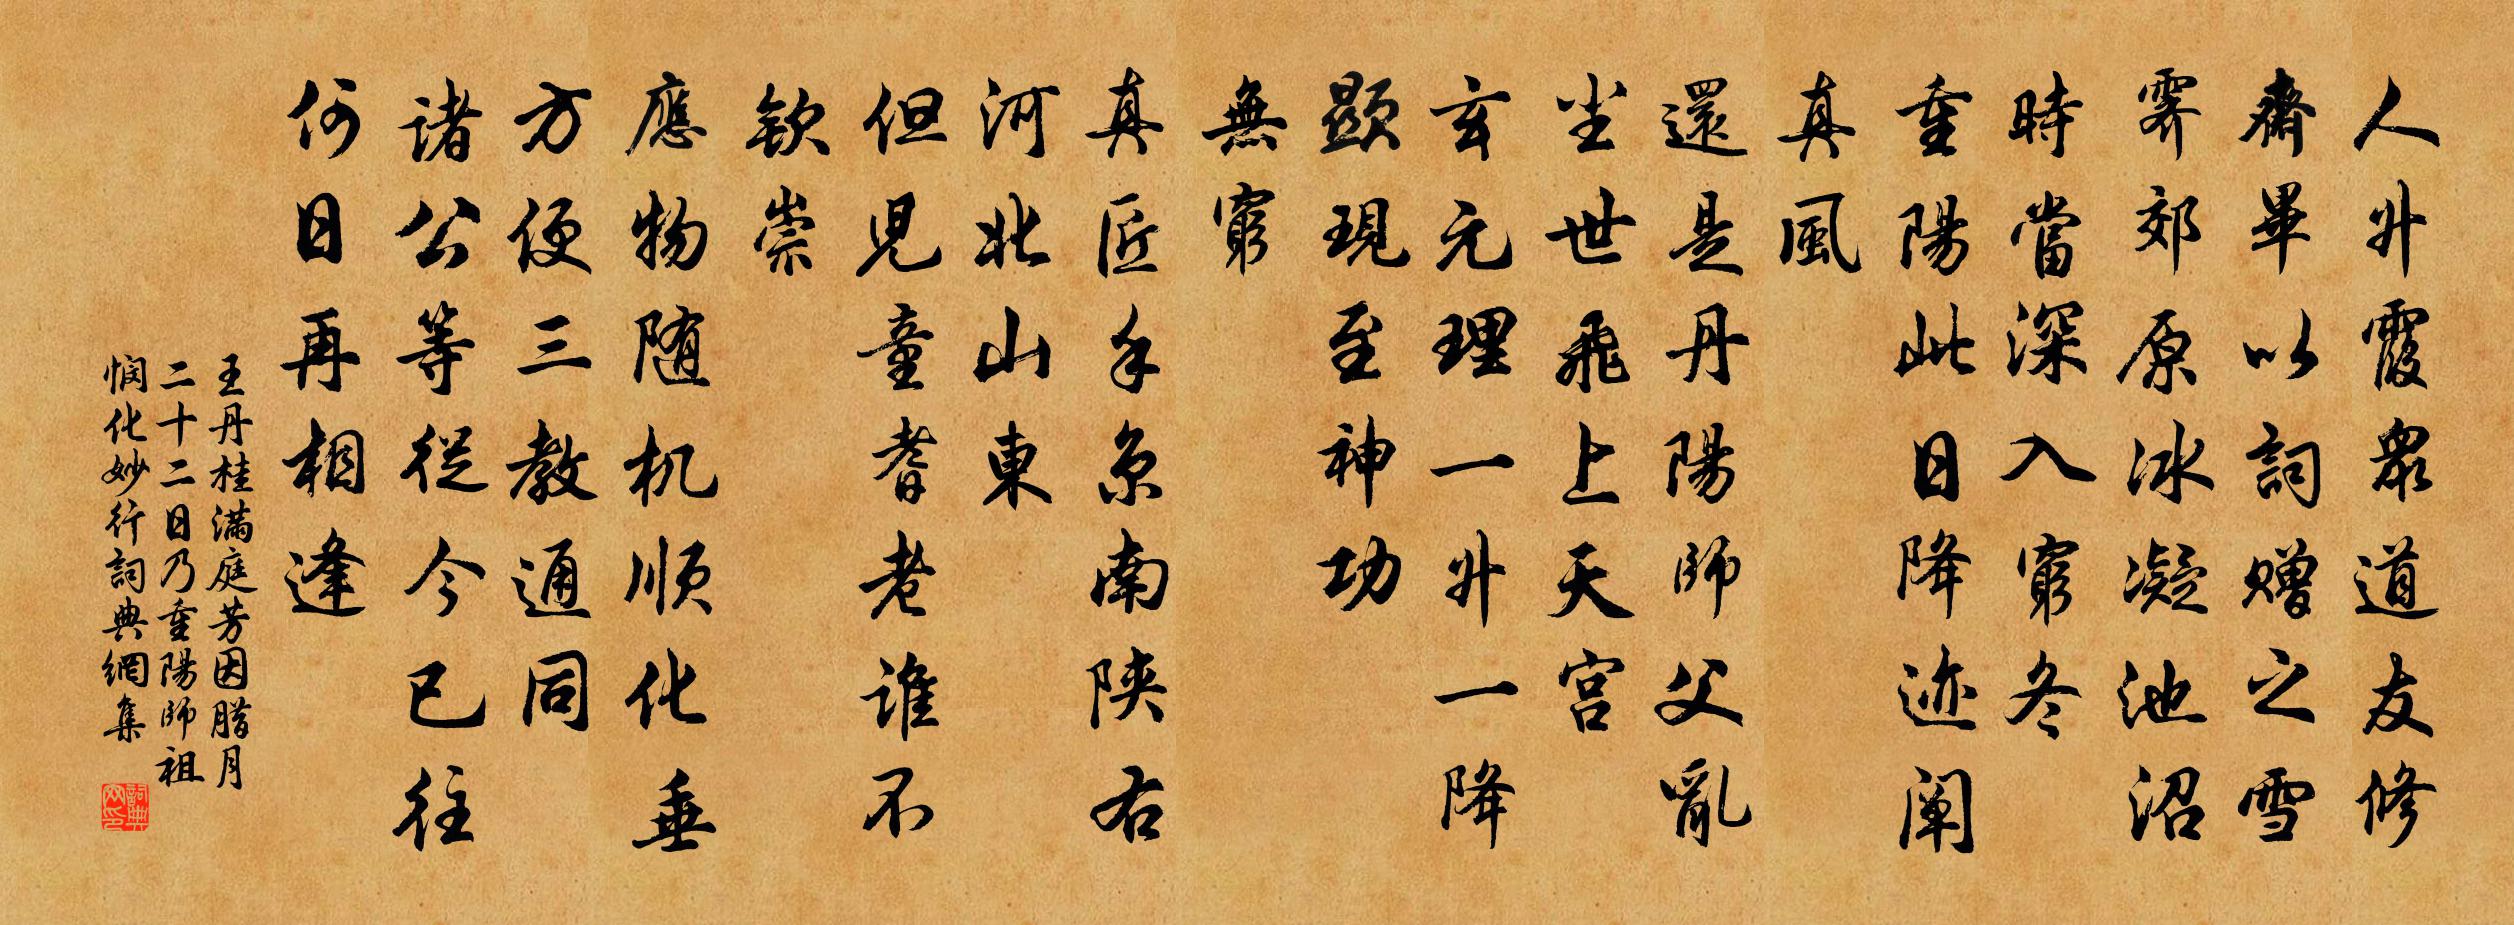 人升霞眾道友修
齋畢以詞贈之雪
霽郊原冰凝池沼
時當深入窮冬
重陽此日降迹闡
真風
還是丹陽師父亂
坐世飛上天宮
玄元理一升一降
顯現至神功
無窮
真匠手京南陝右
河北山東
但兒童耆老誰不
欽崇
應物随机順化垂
方便三教通同
諸公等從今已往
何日再相逢
王丹桂滿庭芳因腊月
二十二日乃重陽師祖
憫化妙行詞典網集
詞典網印